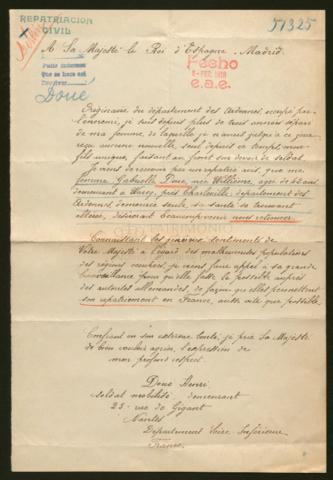 REPATRIACION
CIVIL
51325
A Sa Majesté le Roi d'Espagne. Madrid.
Fecho
FEB. 1918
e.a.e.
Doue
Originaire du département des Ardennes, occupé par
l'ennemi, je suis depuis plus de trois années séparé
de ma femme de laquelle je n'avais jusqu'à ce jour
reçu aucune nouvelle, seul depuis ce temps, mon
fils unique, faisant au front son devoir de soldat.
Je viens de recevoir par un rapatrié avis, que ma
femme Gabrielle Doué, née Willième, âgée de ans
demeurant à près Charleville, département des
Ardennes, demeurée seule, sa santé se trouvant
altérée, désirerait beaucoup venir nous retrouver.
Connaissant les sentiments de
Votre Majesté à l'égard des malheureuses populations
des régions envahies, je viens faire appel à sa grande
bienveillance pour qu'elle fasse le possible auprès
des autorités allemandes, de façon qu'elles permettent
son rapatriement en France, aussi vite que possible.
Confiant en son extrême bonté, je prie Sa Majesté
de bien vouloir agréer, l'expression de
mon profond respect.
Doué Henri
soldat mobilisé demeurant
25 rue de Gigant
Nantes
Département Loire Inférieure
France.